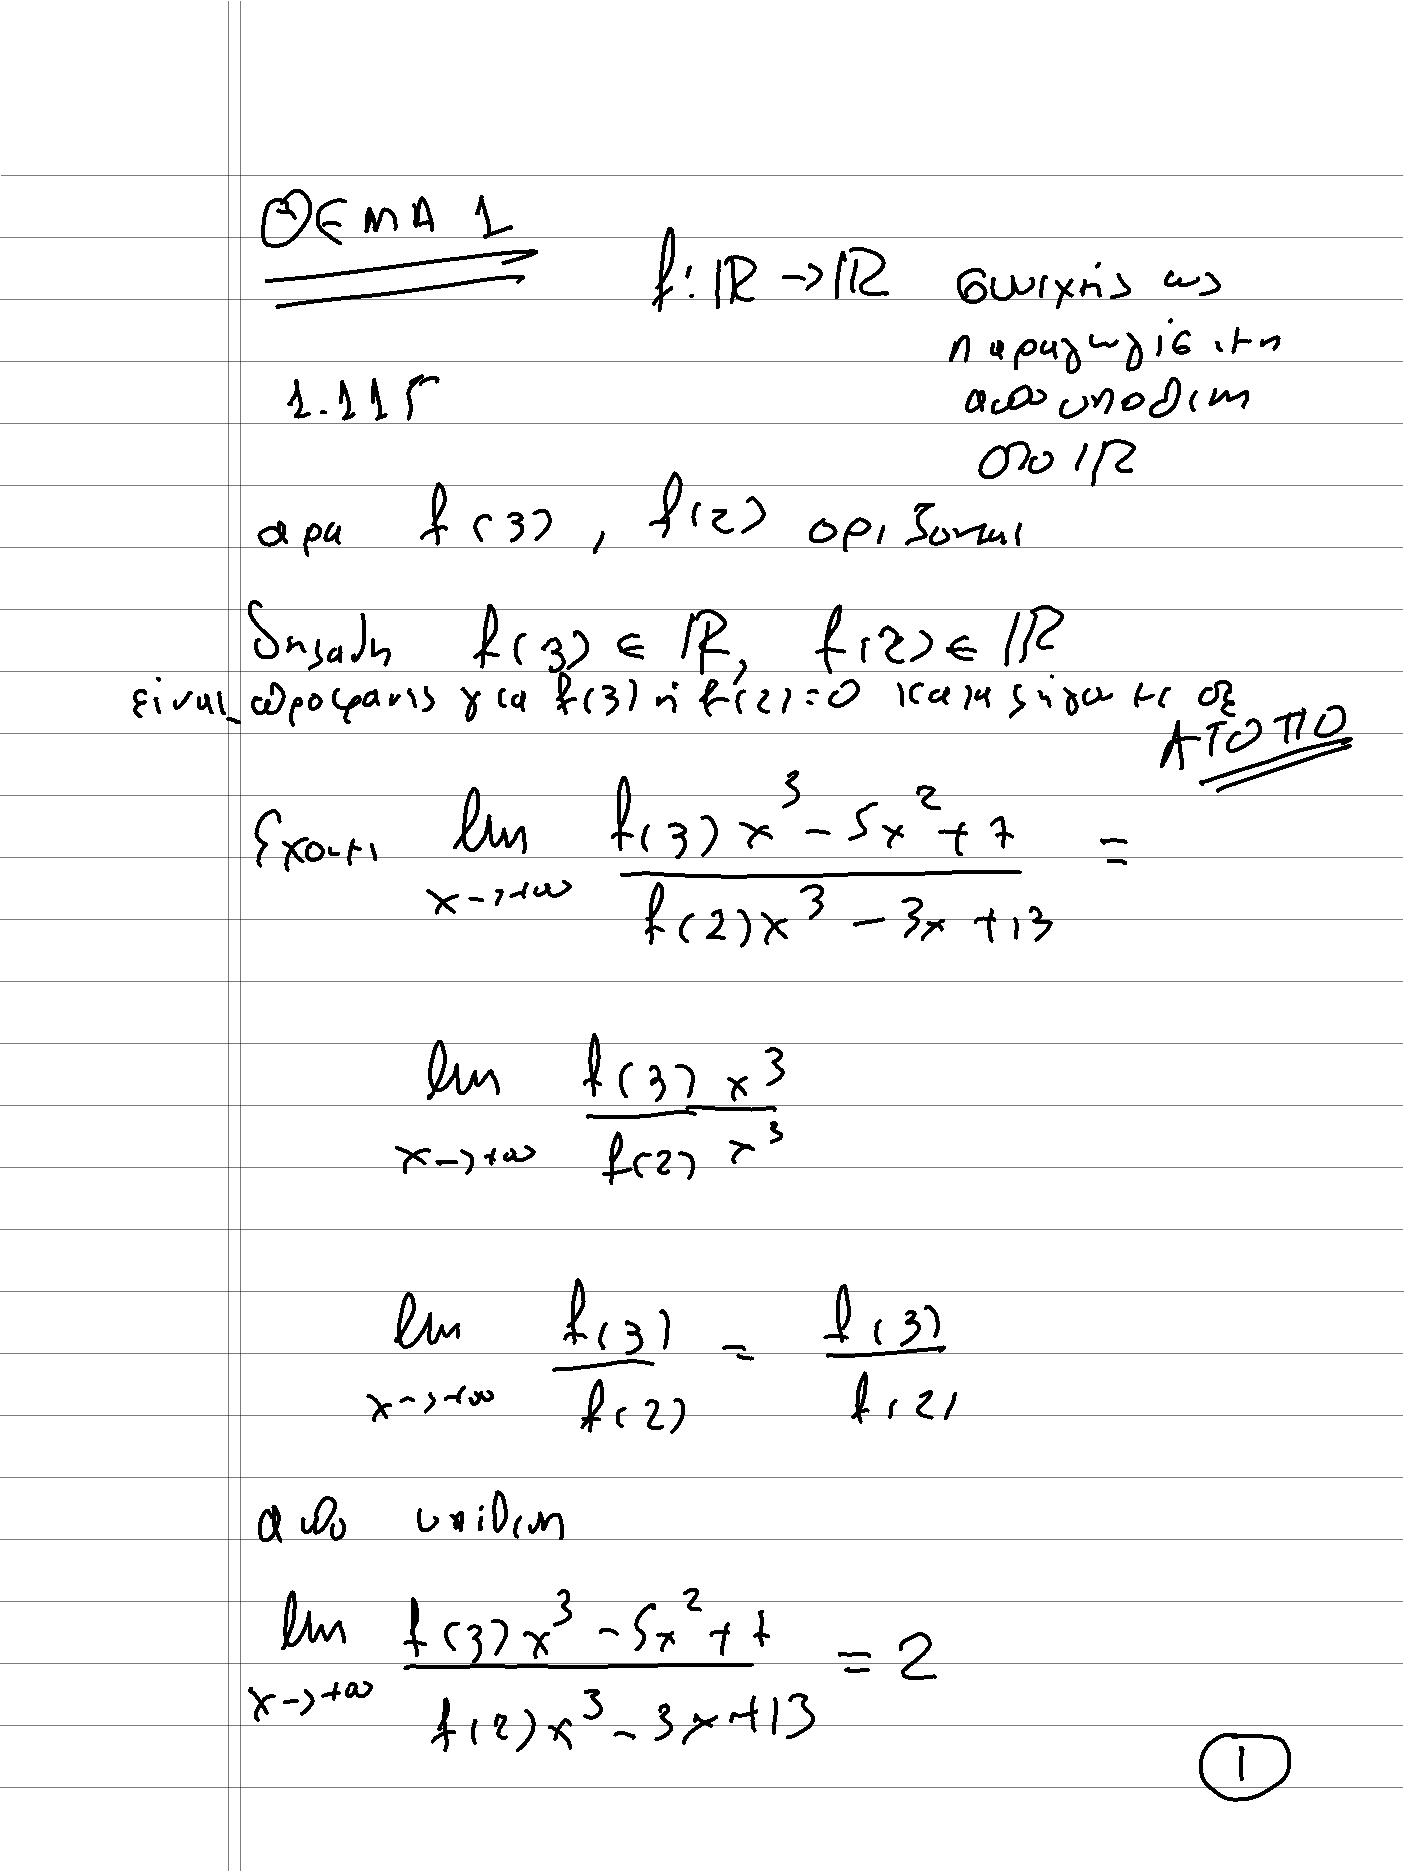 ΘΕΜΑ 1
f: ℝ → ℝ συνεχής ως
παραγωγίσιμη
1.115 από υπόθεση
στο ℝ
άρα f(3), f(2) ορίζονται
δηλαδή f(3) ∈ ℝ, f(2) ∈ ℝ
είναι προφανές για f(3) ή f(2)=0 καταλήγουμε σε
ΑΤΟΠΟ
Έχουμε lim x→+∞ (f(3)x³ - 5x² + 7)/(f(2)x³ - 3x + 13) =
lim x→+∞ (f(3)x³)/(f(2)x³)
lim x→+∞ f(3)/f(2) = f(3)/f(2)
από υπόθεση
lim x→+∞ (f(3)x³ - 5x² + 7)/(f(2)x³ - 3x + 13) = 2
1